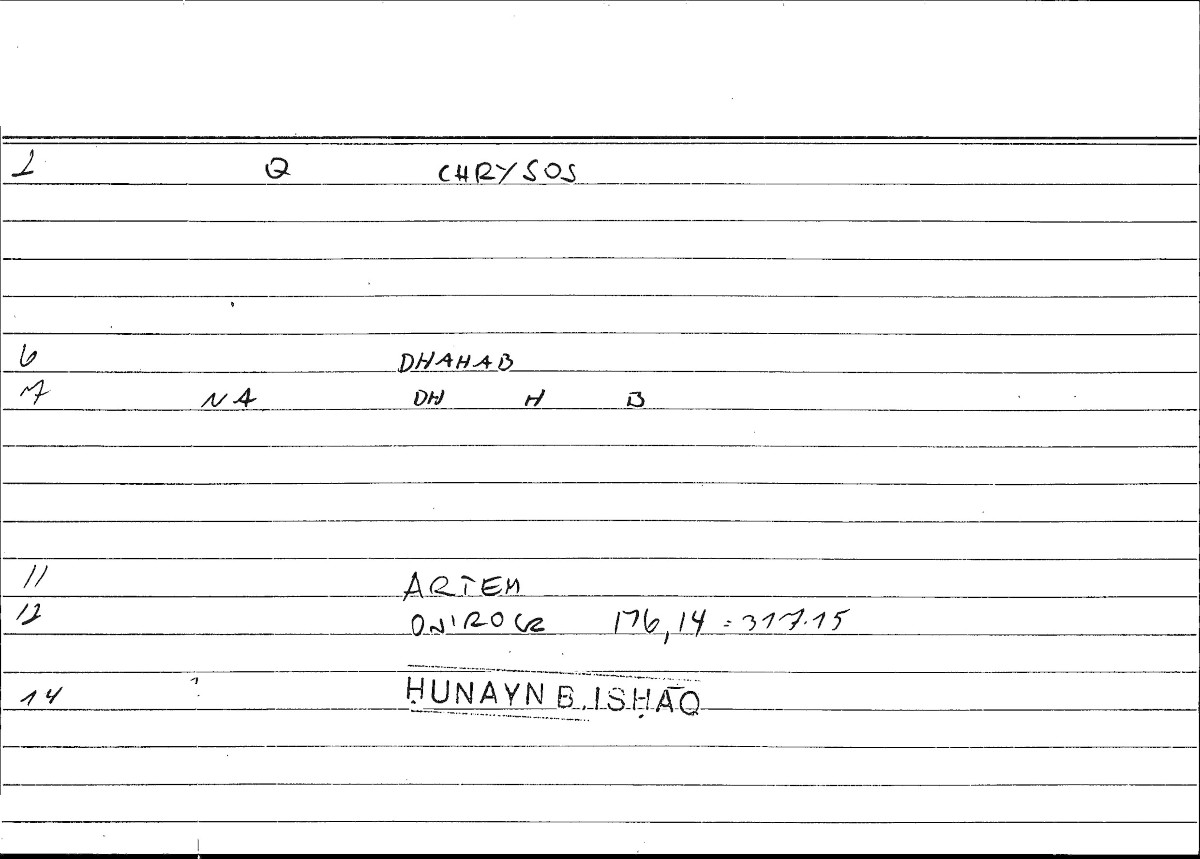 1 Q CHRYSOS
6 DHAHAB
7 NA DH H B
11 ARTEM
12 ONIROCR 176,14 = 317.15
14 ḤUNAYN B. ISḤĀQ